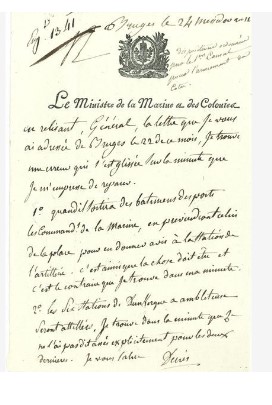 Bruges le 24
Le Ministre de la Marine et des Colonies
en relisant, Général, la lettre que je vous
ai adressée de Bruges le 22 de ce mois, je trouve
une erreur qui s'est glissée sur la minute que
Je m'empresse de
1° quand il sortira des batimens des ports
les Command.ts de la Marine, en préviendront celui
de la place pour en donner avis à la Station de
l'artillerie. c'est ainsi que la chose doit être et
c'est le contraire que je trouve dans ma minute.
2° les Six Stations de Dunkerque a ambleteuse
Seront attellées, Je trouve dans la minute que Je
ne l'ai pas dit assés explicitement pour les deux
dernieres. Je vous salue
Decrès